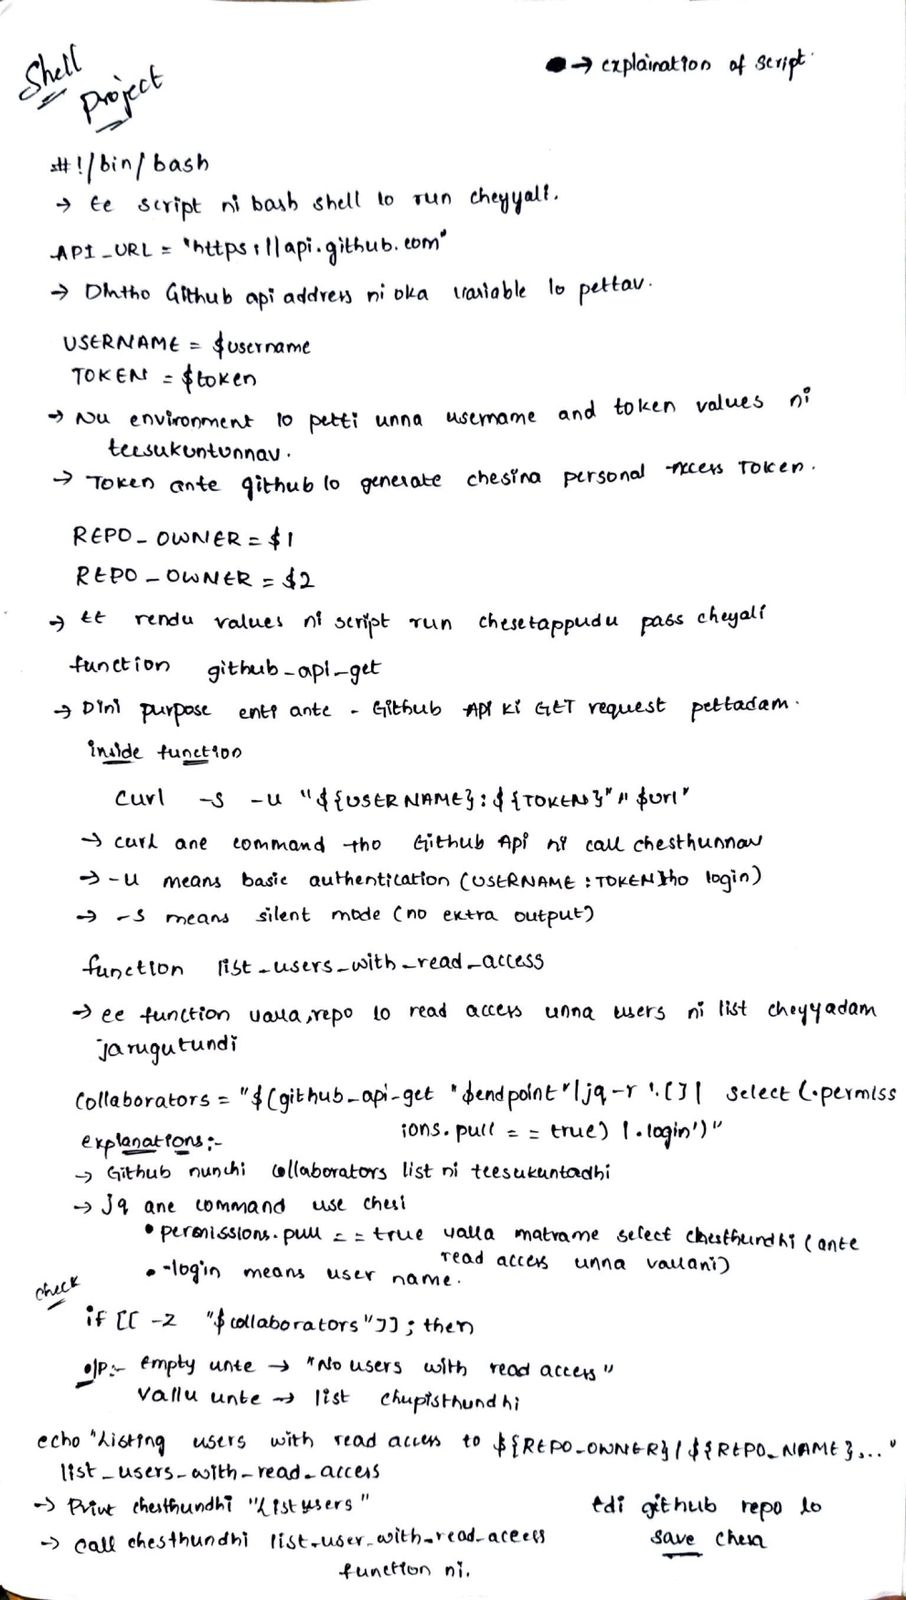 Shell
Project
● → explaination of script.
#!/bin/bash
→ Ee script ni bash shell lo run cheyyali.
API_URL = "https://api.github.com"
→ Dintho Github api address ni oka variable lo pettav.
USERNAME = $username
TOKEN = $token
→ Nu environment lo petti unna username and token values ni
teesukuntunnav.
→ Token ante github lo generate chesina personal access Token.
REPO_OWNER = $1
REPO_OWNER = $2
→ EE rendu values ni script run chesetappudu pass cheyali
function github_api_get
→ Dini purpose enti ante - Github API ki GET request pettadam.
inside function
curl -s -u "${USERNAME}:${TOKEN}" "$url"
→ curl ane command tho Github Api ni call chesthunnav
→ -u means basic authentication (USERNAME:TOKEN tho login)
→ -s means silent mode (no extra output)
function list_users_with_read_access
→ ee function valla, repo lo read access unna users ni list cheyyadam
jarugutundi
Collaborators = "$(github_api_get "$endpoint"|jq -r '.[]| select (.permiss
ions.pull == true) |.login')"
explanations:-
→ Github nunchi collaborators list ni teesukuntadhi
→ Jq ane command use chesi
• permissions.pull == true valla matrame select chesthundhi (ante
read access unna vallani)
• -login means user name.
check
if [[ -z "$collaborators"]]; then
o/p:- empty unte → "No users with read access"
Vallu unte → list chupisthundhi
echo "Listing users with read access to ${REPO_OWNER}/${REPO_NAME}..."
list_users_with_read_access
→ Print chesthundhi "List users"
→ call chesthundhi list_user_with_read_access
function ni.
Edi github repo lo
save chesa